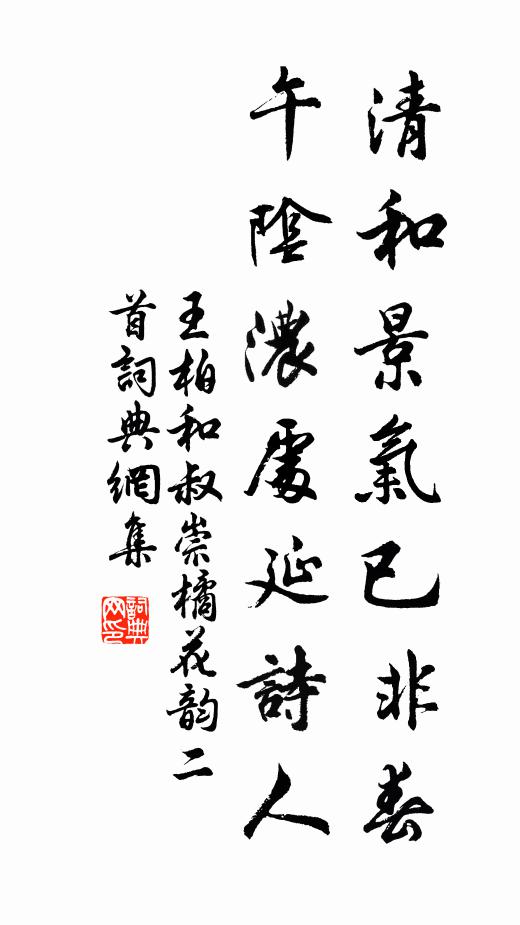 清和景氣已非春
午陰濃處延詩人
王柏和叔崇橘花韵二
首詞典網集
詞典网印